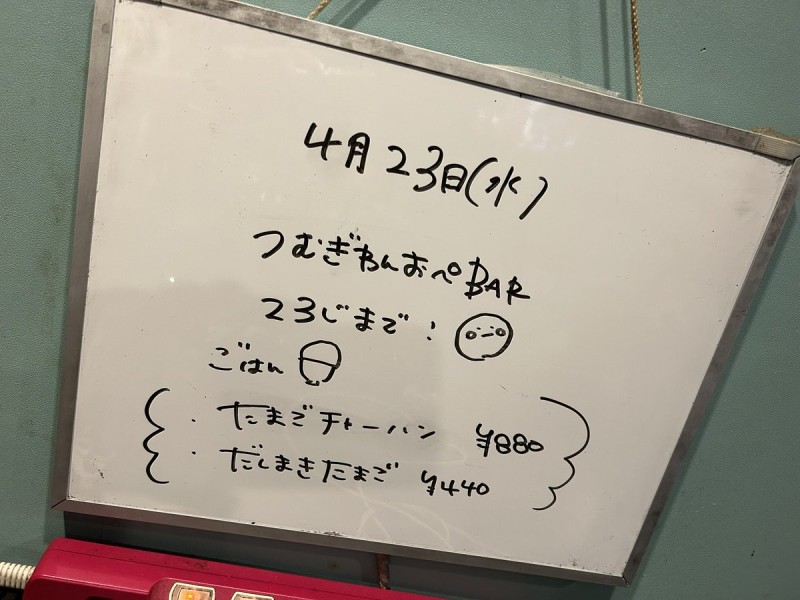 4月23日(水)
つむぎわんおぺBAR
23じまで！
ごはん
・たまごチャーハン ¥880
・だしまきたまご ¥440